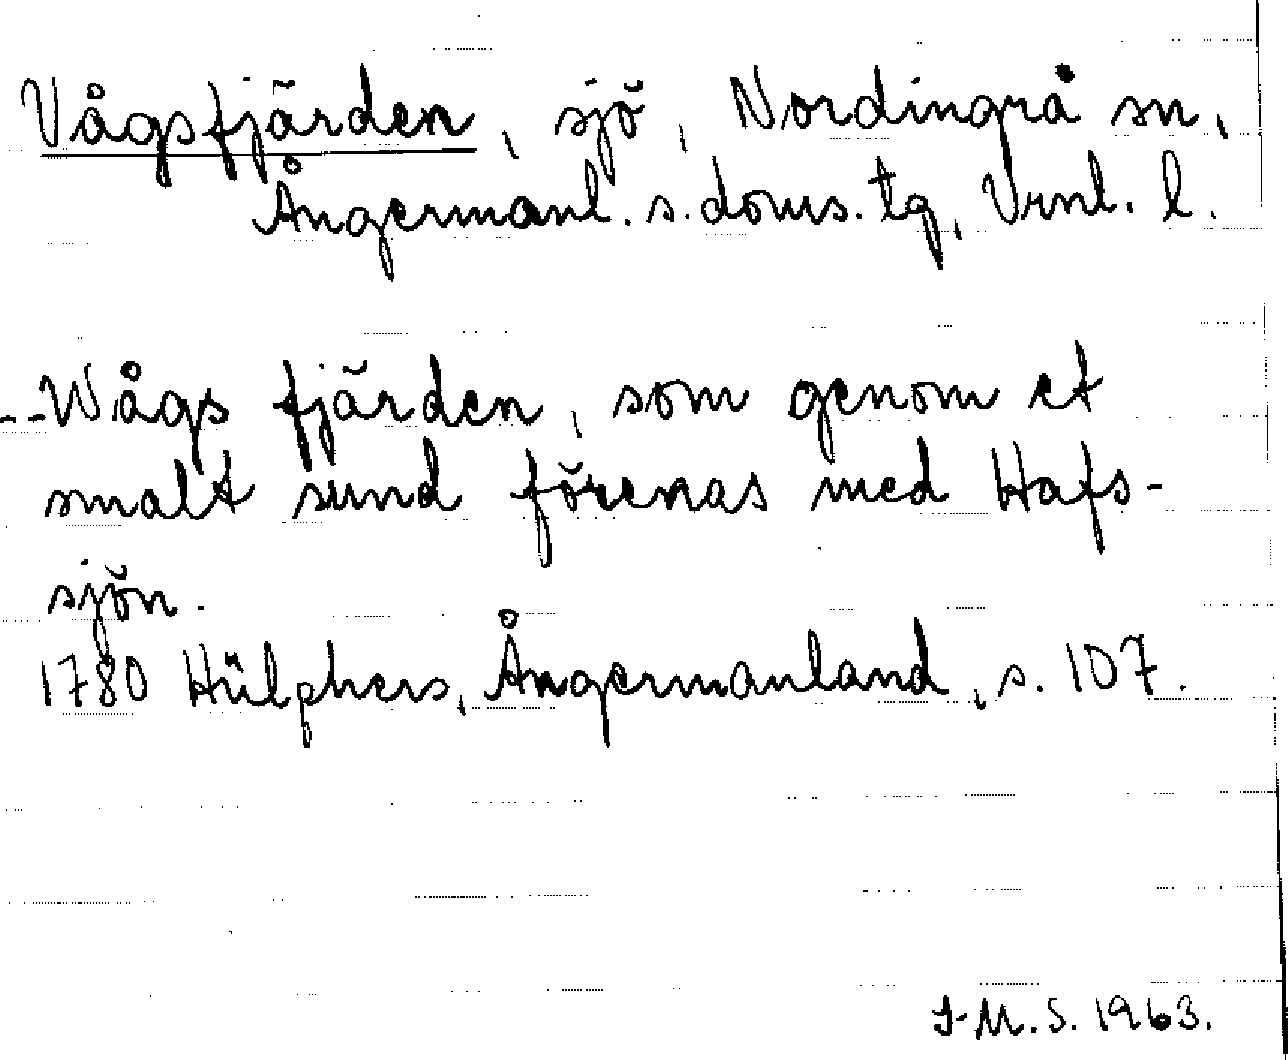 Vågsfjärden, sjö, Nordingrå sn,
Ångermanl. s. doms. tg, Vrnl. l.
--Wågs fjärden, som genom et
smalt sund förenas med Hafs-
sjön.
1780 Hülphers, Ångermanland, s. 107.
I-M. S. 1963.